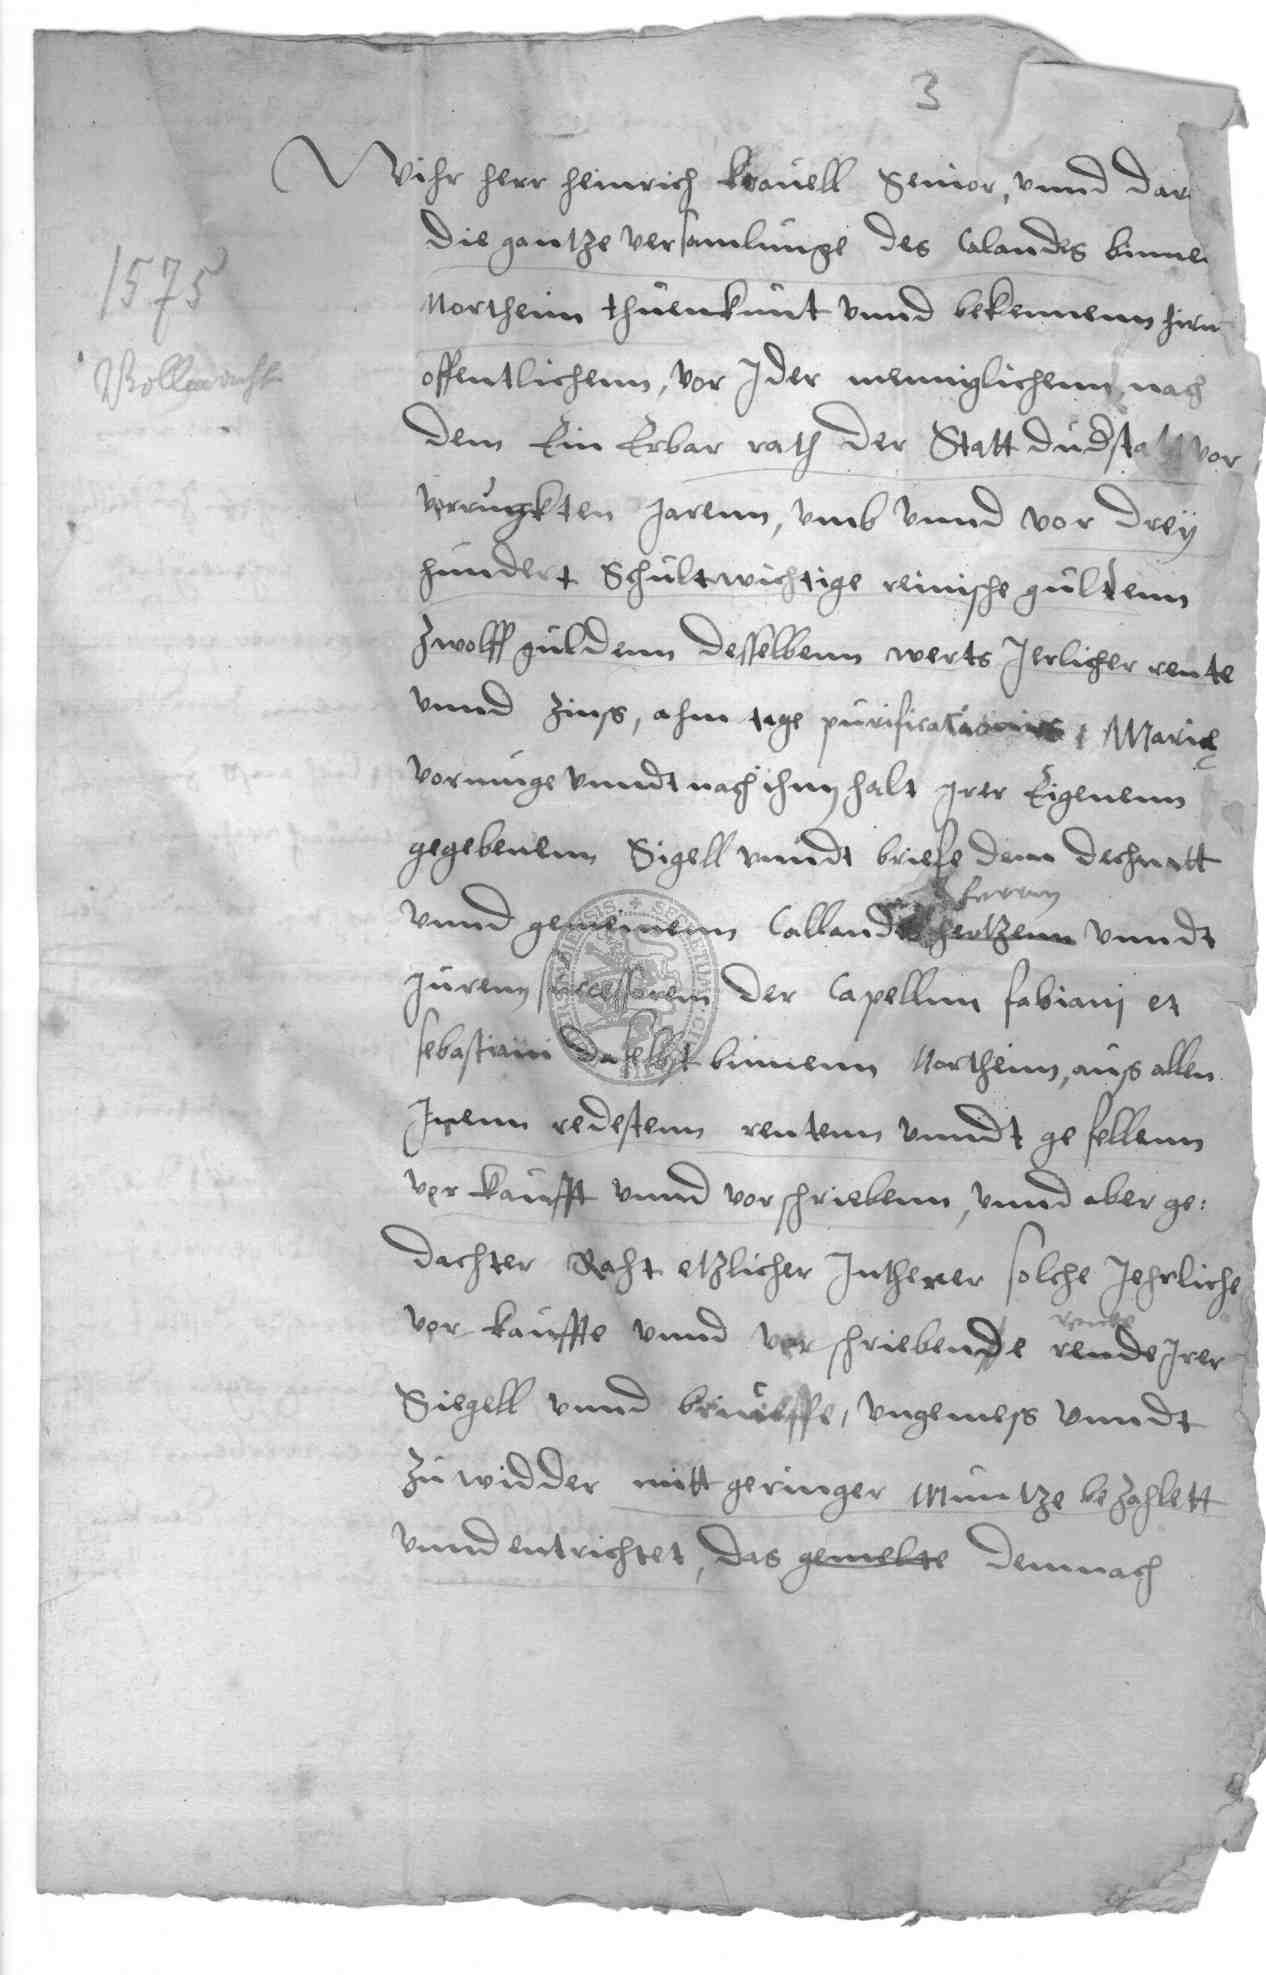 3
Wihr herr heinrich krauell Senior, vnnd dar
die gantze versamlunge des Calandes binne
1575
Northeim thuenkunt vnnd bekennenn hirn
Vollmacht
offentlichenn, vor Jder menniglichenn, nach
dem Ein Erbar rath der Statt dudstatt vor
verruckten jarenn, vmb vnnd vor dreÿ
hundert Schultwichtige reinische guldenn
Zwolff guldenn desselbenn werts Jerlicher rente
vnnd Zinss, ahm tage purificationis Marię
vormuge vnndt nach ihnhalt jrer Eigenenn
gegebenenn Sigell vnndt briefe dem dechantt
herrn
vnnd gemeinenn Callands hertzenn vnndt
jurenn successorenn der Capellnn fabianj et
sebastiani daselbst binnenn Northeim, aus allen
Jrenn redestenn rentenn vnndt gefellenn
verkaufft vnnd vorschriebenn, vnnd aber ge:
dachter Raht etzlicher Jnther solche Jehrliche
rente
verkauffte vnnd verschriebende rende Jrer
Siegell vnnd brieffe, vngemess vnndt
Zuwidder mitt geringer Muntze bezahlett
vnnd entrichtet, das gemelte demnach